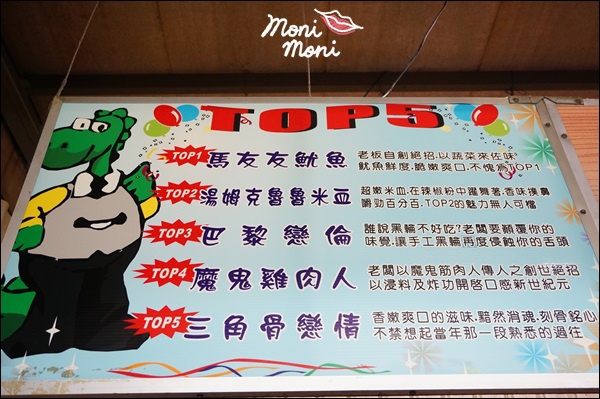 Moni
Moni
TOP5
TOP1 馬友友魷魚
老板自創絕招.以蔬菜來佐味
魷魚鮮度.脆嫩爽口.不愧為TOP1
TOP2 湯姆克魯魯米血
超嫩米血.在辣椒粉中躍舞著.香味撲鼻
嚼勁百分百.TOP2的魅力無人可擋
TOP3 巴黎戀倫
誰說黑輪不好吃?老闆要顛覆你的
味覺.讓手工黑輪再度侵蝕你的舌頭
TOP4 魔鬼雞肉人
老闆以魔鬼筋肉人傳人之創世絕招
以浸料及炸功開啓口感新世紀元
TOP5 三角骨戀情
香嫩爽口的滋味.黯然消魂.刻骨銘心
不禁想起當年那一段熟悉的過往